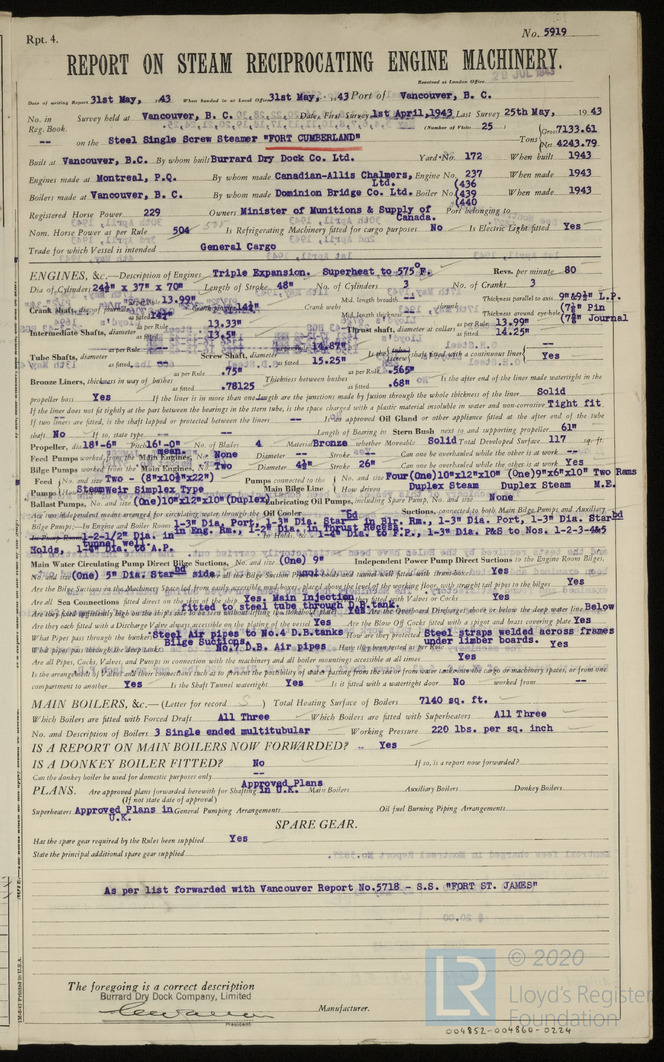 Rpt. 4.
No. 5919
REPORT ON STEAM RECIPROCATING ENGINE MACHINERY.
Received at London Office 29 JUL 1943
Date of writing Report 31st May, 1943 When handed in at Local Office 31st May, 1943 Port of Vancouver, B. C.
No. in Reg. Book. Survey held at Vancouver, B. C. Date, First Survey 1st April, 1943 Last Survey 25th May, 1943
(Number of Visits 25)
-- on the Steel Single Screw Steamer "FORT CUMBERLAND" Tons Gross 7133.61 Net 4243.79
Built at Vancouver, B.C. By whom built Burrard Dry Dock Co. Ltd. Yard No. 172 When built 1943
Engines made at Montreal, P.Q. By whom made Canadian-Allis Chalmers, Ltd. Engine No. 237 when made 1943
Boilers made at Vancouver, B. C. By whom made Dominion Bridge Co. Ltd. Boiler No. (436 (439 (440 When made 1943
Registered Horse Power 229 Owners Minister of Munitions & Supply of Canada. Port belonging to
Nom. Horse Power as per Rule 504 Is Refrigerating Machinery fitted for cargo purposes No Is Electric Light fitted Yes
Trade for which Vessel is intended General Cargo
ENGINES, &c.—Description of Engines Triple Expansion. Superheat to 575°F. Revs. per minute 80
Dia. of Cylinders 24½" x 37" x 70" Length of Stroke 48" No. of Cylinders 3 No. of Cranks 3
Crank Shaft, dia. of journals as per Rule 13.99" as fitted 14¼" Crank pin dia. 14¼" Crank webs Mid. length breadth -- Mid. length thick Thickness parallel to axis 9"&9½" L.P. Thickness around eyehole (7½" Pin (7⅜" Journal
Intermediate Shafts, diameter as per Rule 13.33" as fitted 13.5" Thrust shaft, diameter at collars as per Rule 13.99" as fitted 14.25"
Tube Shafts, diameter -- Screw Shaft, diameter as per Rule 14.87" as fitted 15.25" Is the screw shaft fitted with a continuous liner Yes
Bronze Liners, thickness in way of bushes as per Rule .75" as fitted .78125 Thickness between bushes as per Rule .565" as fitted .68" Is the after end of the liner made watertight in the
propeller boss Yes If the liner is in more than one length are the junctions made by fusion through the whole thickness of the liner Solid
If the liner does not fit tightly at the part between the bearings in the stern tube, is the space charged with a plastic material insoluble in water and non-corrosive Tight fit
If two liners are fitted, is the shaft lapped or protected between the liners -- Is an approved Oil Gland or other appliance fitted at the after end of the tube
shaft No If so, state type -- Length of Bearing in Stern Bush next to and supporting propeller 61"
Propeller, dia. 18'-6" Pitch 16'-0" mean. No. of Blades 4 Material Bronze whether Moveable Solid Total Developed Surface 117 sq. ft.
Feed Pumps worked from the Main Engines, No. None Diameter -- Stroke -- Can one be overhauled while the other is at work --
Bilge Pumps worked from the Main Engines, No. Two Diameter 4½" Stroke 26" Can one be overhauled while the other is at work Yes
Feed Pumps No. and size Two - (8"x10½"x22") How driven Steam Weir Simplex Type Pumps connected to the Main Bilge Line No. and size Four (One)10"x12"x10" (One)9"x6"x10" Two Rams How driven Duplex Steam Duplex Steam M.E.
Ballast Pumps, No. and size (One)10"x12"x10"(Duplex) Lubricating Oil Pumps, including Spare Pump, No. and size None
Are two independent means arranged for circulating water through the Oil Cooler Suctions, connected to both Main Pumps and Auxiliary
Bilge Pumps:—In Engine and Boiler Room 1-3" Dia. Port, 1-3" Dia. Starbd in Blr. Rm., 1-3" Dia. Port, 1-3" Dia. Starbd
in Eng. Rm., 1-2½" Dia. in Thrust Recess
1-2-1/2" Dia. in tunnel well. In Holds, &c. 1-4" Dia. to F.P., 1-3" Dia. P&S to Nos. 1-2-3-4&5
Holds, 1-4" Dia. to A.P.
Main Water Circulating Pump Direct Bilge Suctions, No. and size (One) 9" Independent Power Pump Direct Suctions to the Engine Room Bilges,
No. and size (One) 5" Dia. Starbd side. Are all the Bilge Suction Pipes in holds and tunnel well fitted with strum-boxes Yes
Are the Bilge Suctions in the Machinery Space led from easily accessible mud boxes, placed above the level of the working floor, with straight tail pipes to the bilges Yes
Are all Sea Connections fitted direct on the skin of the ship Yes. Main Injection fitted to steel tube through D.B. tank. Are they fitted with Valves or Cocks Yes
Are they fixed sufficiently high on the ship's side to be seen without lifting the stokehold plates Yes Are the Overboard Discharges above or below the deep water line Below
Are they each fitted with a Discharge Valve always accessible on the plating of the vessel Yes Are the Blow Off Cocks fitted with a spigot and brass covering plate Yes
What Pipes pass through the bunkers Steel Air pipes to No.4 D.B. tanks Bilge Suctions. How are they protected Steel straps welded across frames under limber boards.
What pipes pass through the deep tanks No. 7 D.B. Air pipes Have they been tested as per Rule Yes
Are all Pipes, Cocks, Valves, and Pumps in connection with the machinery and all boiler mountings accessible at all times Yes
Is the arrangement of valves and their connections such as to prevent the possibility of water passing from the sea or from water tanks into the cargo or machinery spaces, or from one
compartment to another Yes Is the Shaft Tunnel watertight Yes Is it fitted with a watertight door No worked from --
MAIN BOILERS, &c.—(Letter for record S) Total Heating Surface of Boilers 7140 sq. ft.
Which Boilers are fitted with Forced Draft All Three Which Boilers are fitted with Superheaters All Three
No. and Description of Boilers 3 Single ended multitubular Working Pressure 220 lbs. per sq. inch
IS A REPORT ON MAIN BOILERS NOW FORWARDED? Yes
IS A DONKEY BOILER FITTED? No If so, is a report now forwarded?
Can the donkey boiler be used for domestic purposes only --
PLANS. Are approved plans forwarded herewith for Shafting Approved Plans in U.K. Main Boilers Auxiliary Boilers Donkey Boilers
(If not state date of approval)
Superheaters Approved Plans in U.K. General Pumping Arrangements Oil fuel Burning Piping Arrangements
SPARE GEAR.
Has the spare gear required by the Rules been supplied Yes
State the principal additional spare gear supplied
As per list forwarded with Vancouver Report No.5718 - S.S. "FORT ST. JAMES"
The foregoing is a correct description
Burrard Dry Dock Company, Limited
Manufacturer.
President
© 2020
Lloyd's Register
Foundation
004852-004860-0224